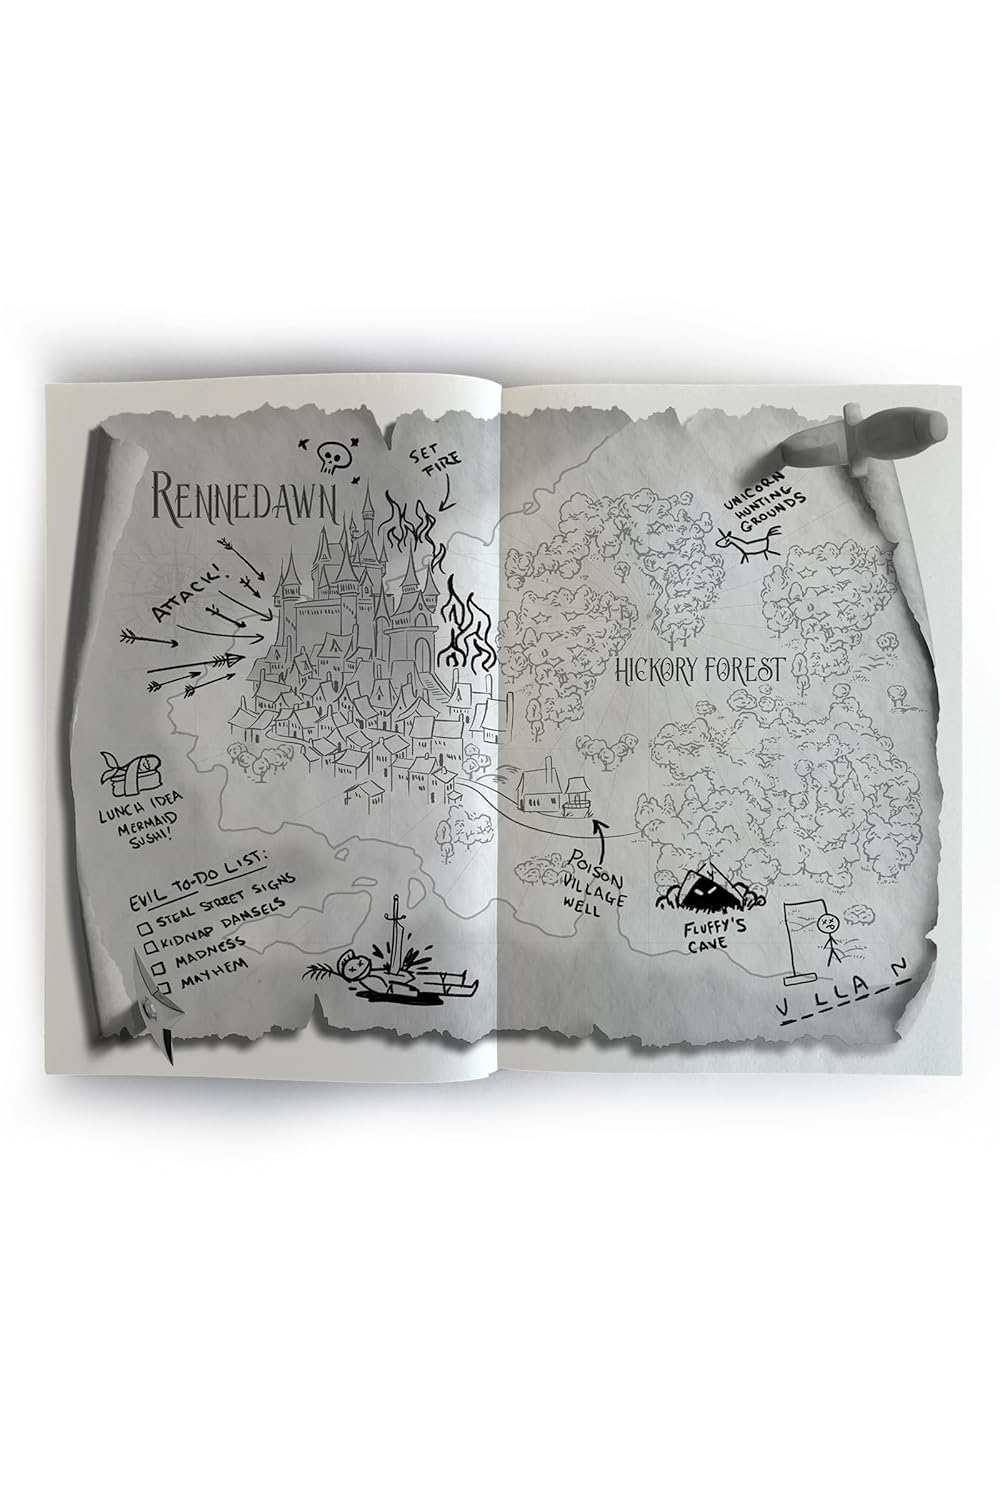 RENNEDAWN
SET
FIRE
ATTACK!
LUNCH IDEA
MERMAID
SUSHI!
EVIL TO-DO LIST:
STEAL STREET SIGNS
KIDNAP DAMSELS
MADNESS
MAYHEM
UNICORN
HUNTING
GROUNDS
HICKORY FOREST
POISON
VILLAGE
WELL
FLUFFY'S
CAVE
V_LLA_N